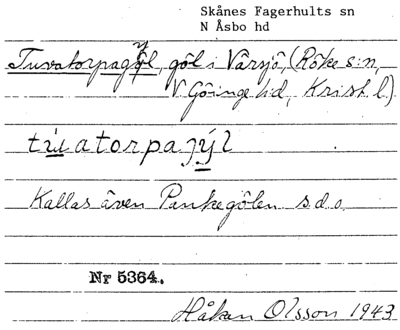 Skånes Fagerhults sn
N Åsbo hd
Tuvatorpagyl, göl i Vårsjö, (Röke s:n,
V Göinge hd, Krist. l.)
tu̇atorpajýl
Kallas även Pankegölen s.d.o.
Nr 5364.
Håkan Olsson 1943